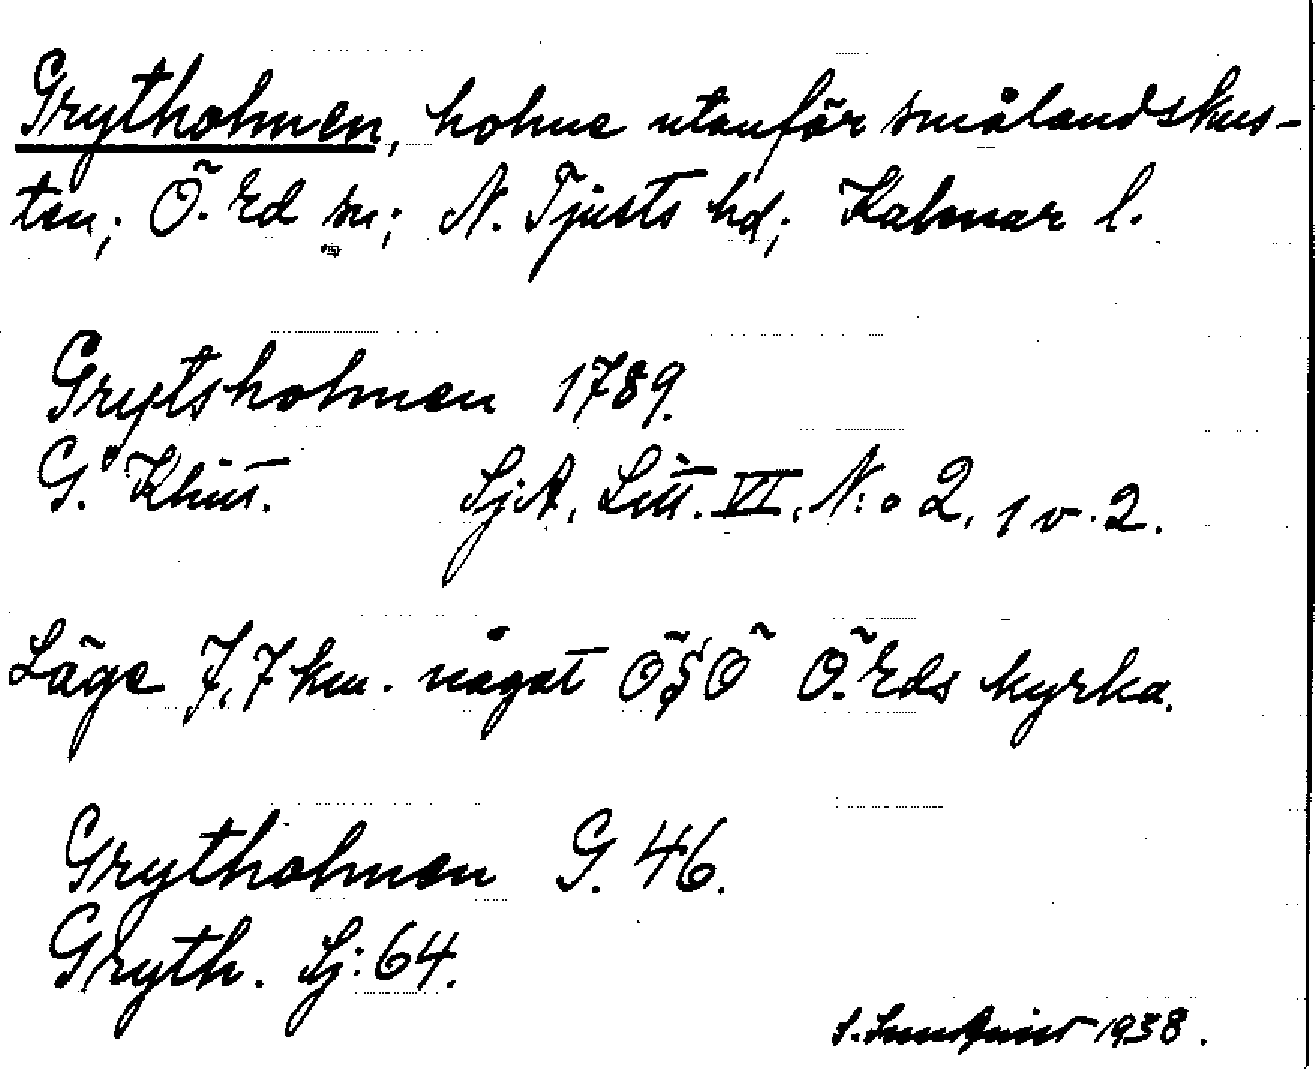 Grytholmen, holme utanför smålandskus-
ten; Ö. Ed sn; N. Tjusts hd; Kalmar l.
Grytsholmen 1789.
G. Klint. SjA, Litt. VI, N:o 2, 1 v. 2.
Läge 7,7 km. något ÖSÖ Ö. Eds kyrka.
Grytholmen G. 46.
Gryth. Sj: 64.
S. 1938.